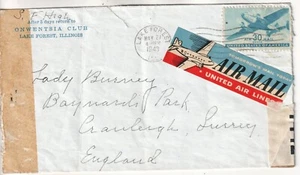 After 5 days return to
ONWENTSIA CLUB
LAKE FOREST, ILLINOIS
LAKE FOREST
MAY 27
1942
30
AIR MAIL
UNITED AIR LINES
Lady Burney
Baynards Park
Cranleigh, Surrey
England